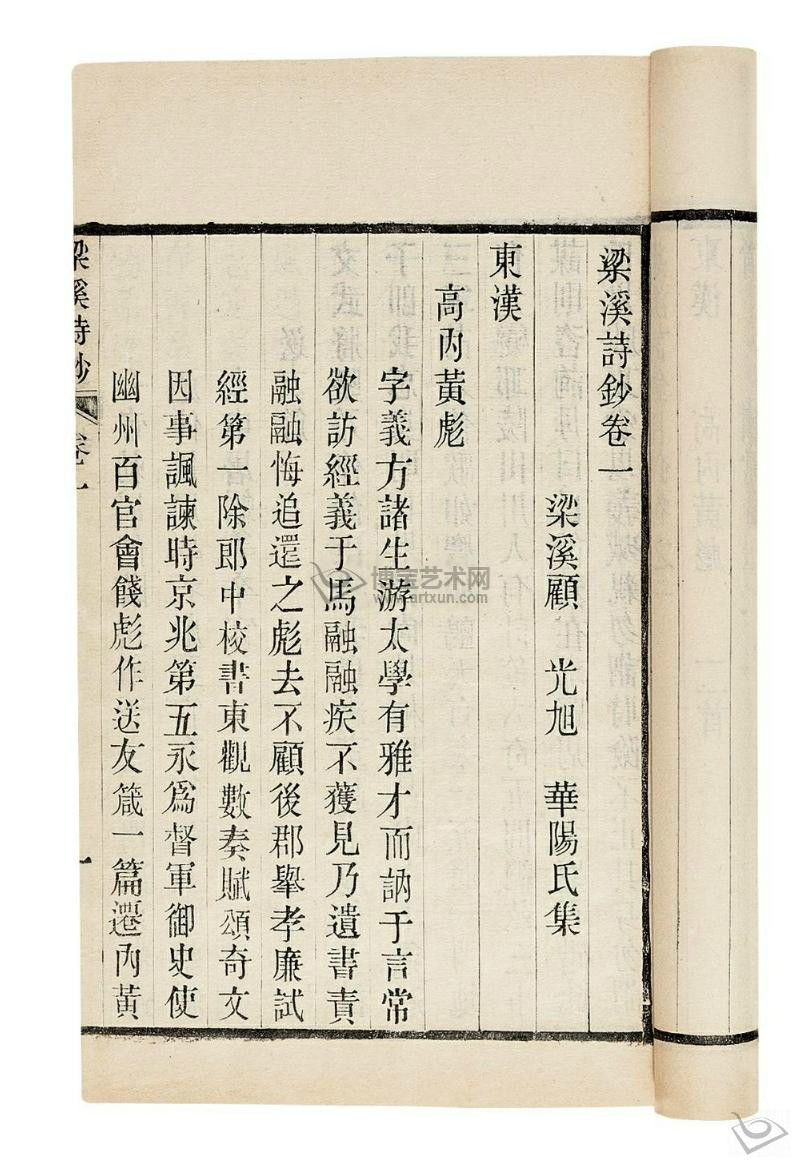 梁溪詩鈔卷一
梁溪顧　光旭　華陽氏集
東漢
高內黃彪
字義方諸生游太學有雅才而訥于言常
欲訪經義于馬融融疾不獲見乃遺書責
融融悔追還之彪去不顧後郡舉孝廉試
經第一除郎中校書東觀數奏賦頌奇文
因事諷諫時京兆第五永爲督軍御史使
幽州百官會餞彪作送友箴一篇遷內黃
梁溪詩鈔
卷一
一
博宝艺术网
www.artxun.com